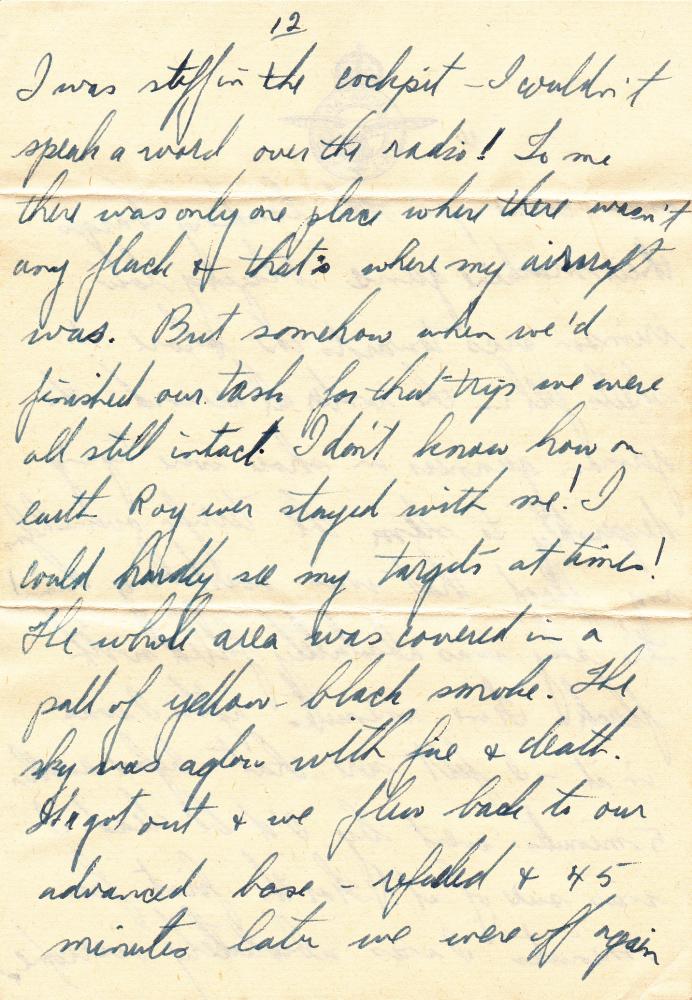 12
I was stiff in the cockpit - I couldn't
speak a word over the radio! To me
there was only one place where there wasn't
any flack & that's where my aircraft
was. But somehow when we'd
finished our task for that trip we were
all still intact. I don't know how on
earth Roy ever stayed with me! I
could hardly see my targets at times!
The whole area was covered in a
pall of yellow-black smoke. The
sky was aglow with fire & death.
got out & we flew back to our
advanced base - refueled & 45
minutes later we were off again